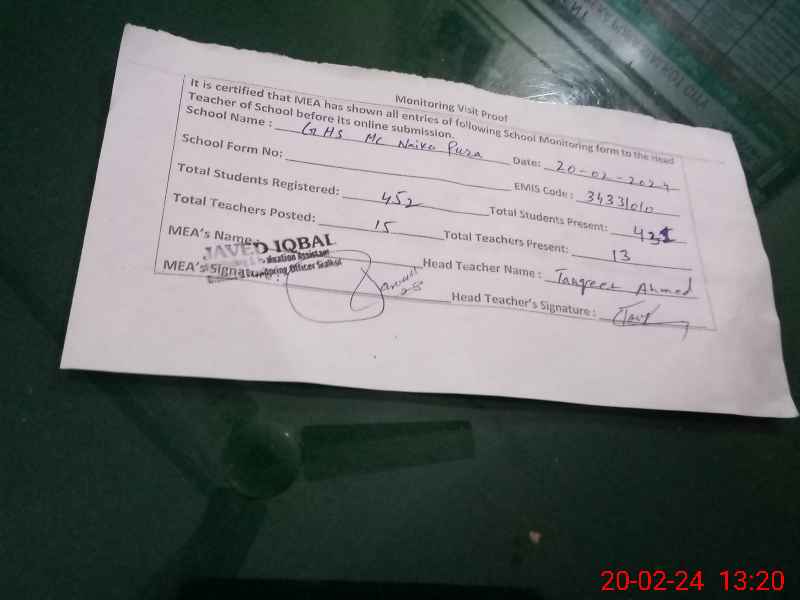 Monitoring Visit Proof
It is certified that MEA has shown all entries of following School Monitoring form to the Head
Teacher of School before its online submission.
School Name : GHS Mc Naika Pura Date: 20-02-2024
School Form No: EMIS Code : 34331010
Total Students Registered: 452 Total Students Present: 431
Total Teachers Posted: 15 Total Teachers Present: 13
MEA's Name JAVED IQBAL Head Teacher Name : Tauqeer Ahmed
Monitoring Officer Sialkot
MEA's Signa Head Teacher's Signature :
20-02-24 13:20